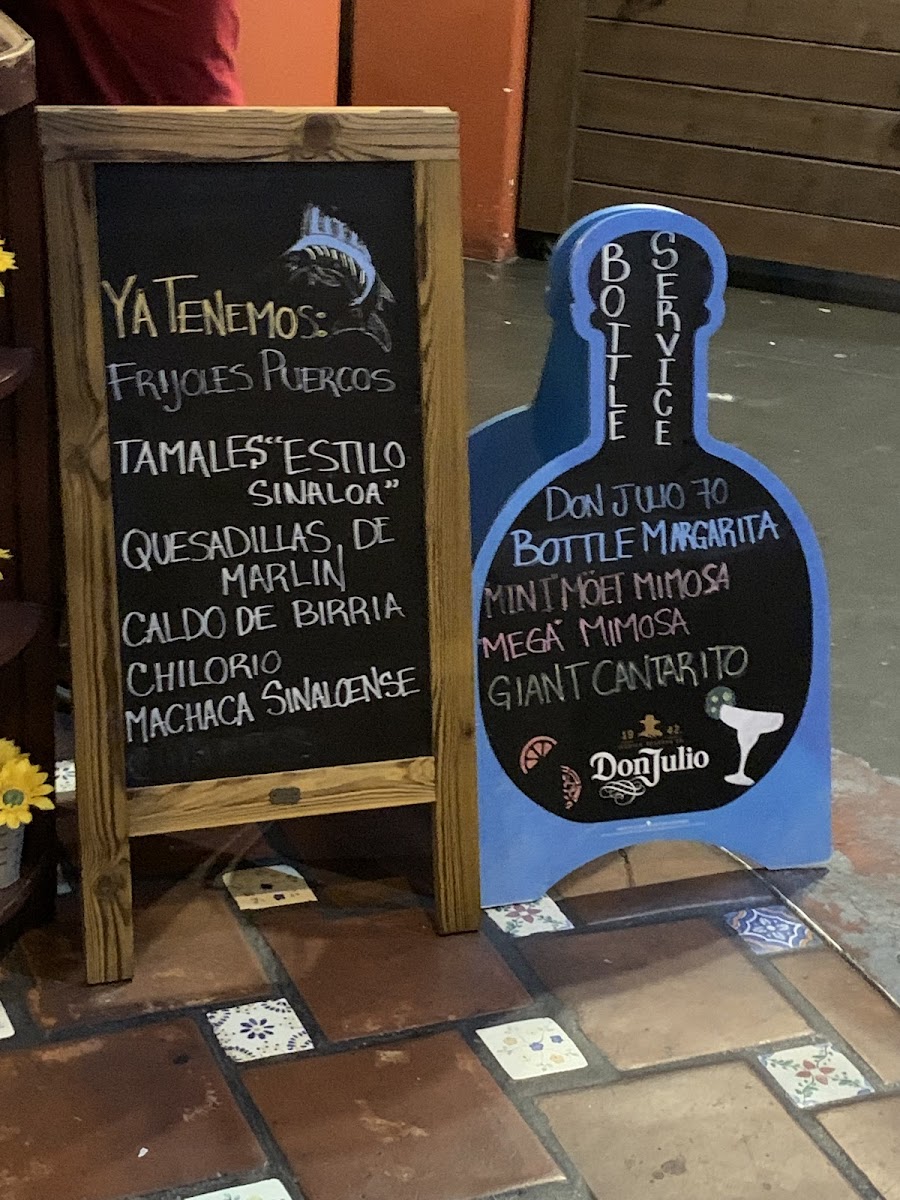 YA TENEMOS:
FRIJOLES PUERCOS
TAMALES "ESTILO
SINALOA"
QUESADILLAS DE
MARLIN
CALDO DE BIRRIA
CHILORIO
MACHACA SINALOENSE
BOTTLE
SERVICE
DON JULIO 70
BOTTLE MARGARITA
MINI MÖET MIMOSA
MEGA MIMOSA
GIANT CANTARITO
19 42
DonJulio